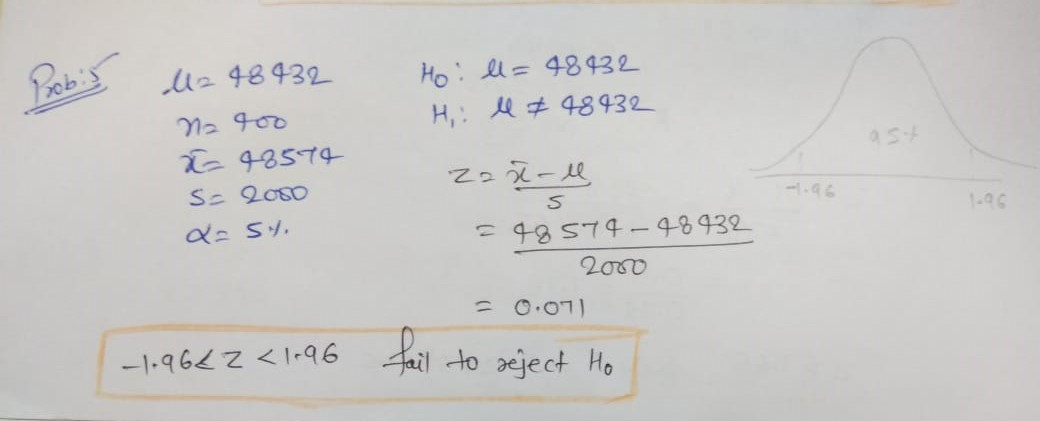 Prob:5
μ= 48432
n= 400
x̄= 48574
S= 2000
α= 5%
H₀: μ= 48432
H₁: μ ≠ 48432
z= x̄-μ
S
= 48574-48432
2000
= 0.071
-1.96<z<1.96 fail to reject H₀
95%
-1.96
1.96